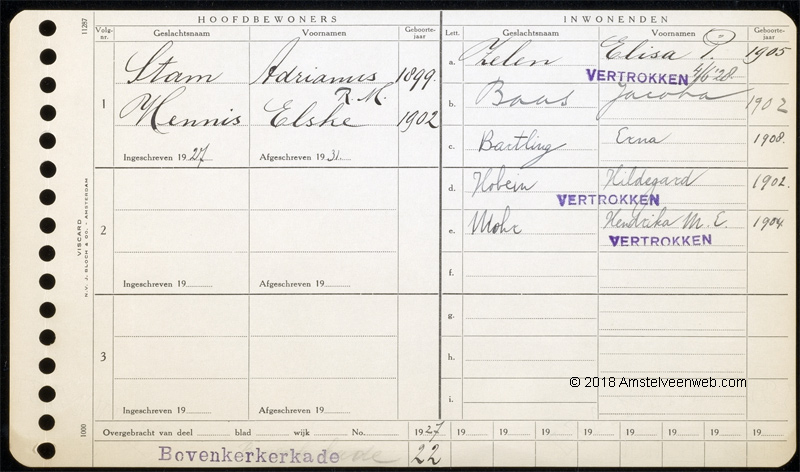 HOOFDBEWONERS
INWONENDEN
Volg-nr. Geslachtsnaam Voornamen Geboorte-jaar Lett. Geslachtsnaam Voornamen Geboorte-jaar
11287
1 Stam Adrianus 1899
R. M.
Hennis Elske 1902
Ingeschreven 1927 Afgeschreven 1931
2
Ingeschreven 19 Afgeschreven 19
3
Ingeschreven 19 Afgeschreven 19
a. Zelen Elisa P. 1905
VERTROKKEN 4/6 '28
b. Baas Jacoba 1902
c. Bartling Erna 1908.
d. Hobein Hildegard 1902.
VERTROKKEN
e. Mohr Hendrika M. E. 1904
VERTROKKEN
f.
g.
h.
i.
© 2018 Amstelveenweb.com
VISCARD
N.V. J. BLOCH & CO. - AMSTERDAM
1000
Overgebracht van deel blad wijk No. 1927 19 19 19 19 19 19 19 19
Bovenkerkerkade 22